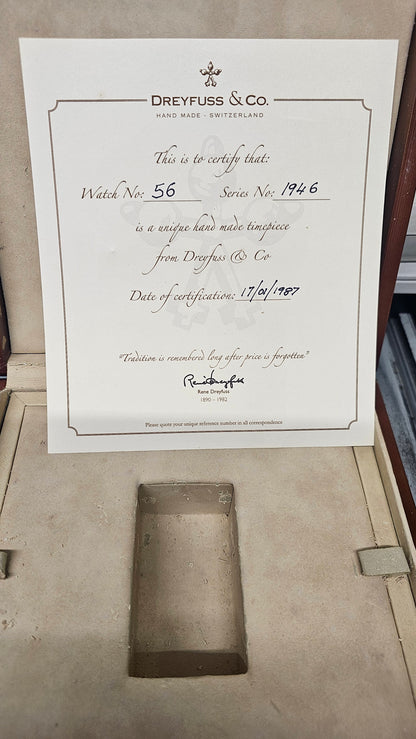 DREYFUSS & CO.
HAND MADE - SWITZERLAND
This is to certify that:
Watch No: 56 Series No: 1946
is a unique hand made timepiece
from Dreyfuss & Co
Date of certification: 17/01/1987
"Tradition is remembered long after price is forgotten"
Rene Dreyfuss
Rene Dreyfuss
1890 - 1982
Please quote your unique reference number in all correspondence